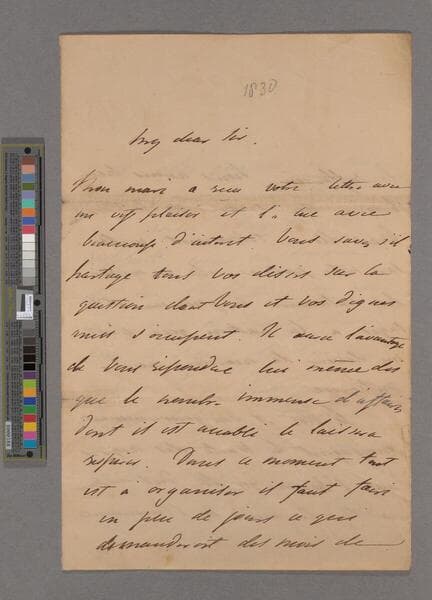 1830
My dear Sir.
Mon mari a reçu votre lettre avec
un vif plaisir et l'a lue avec
beaucoup d'intérêt. Vous savez s'il
partage tous vos désirs sur la
question dont vous et vos dignes
amis s'occupent. Il aura l'avantage
de vous répondre lui même dès
que le nombre immense d'affaires
dont il est accablé le laissera
respirer. Dans ce moment tout
est à organiser il faut faire
en peu de jours ce qui
demanderoit des mois de